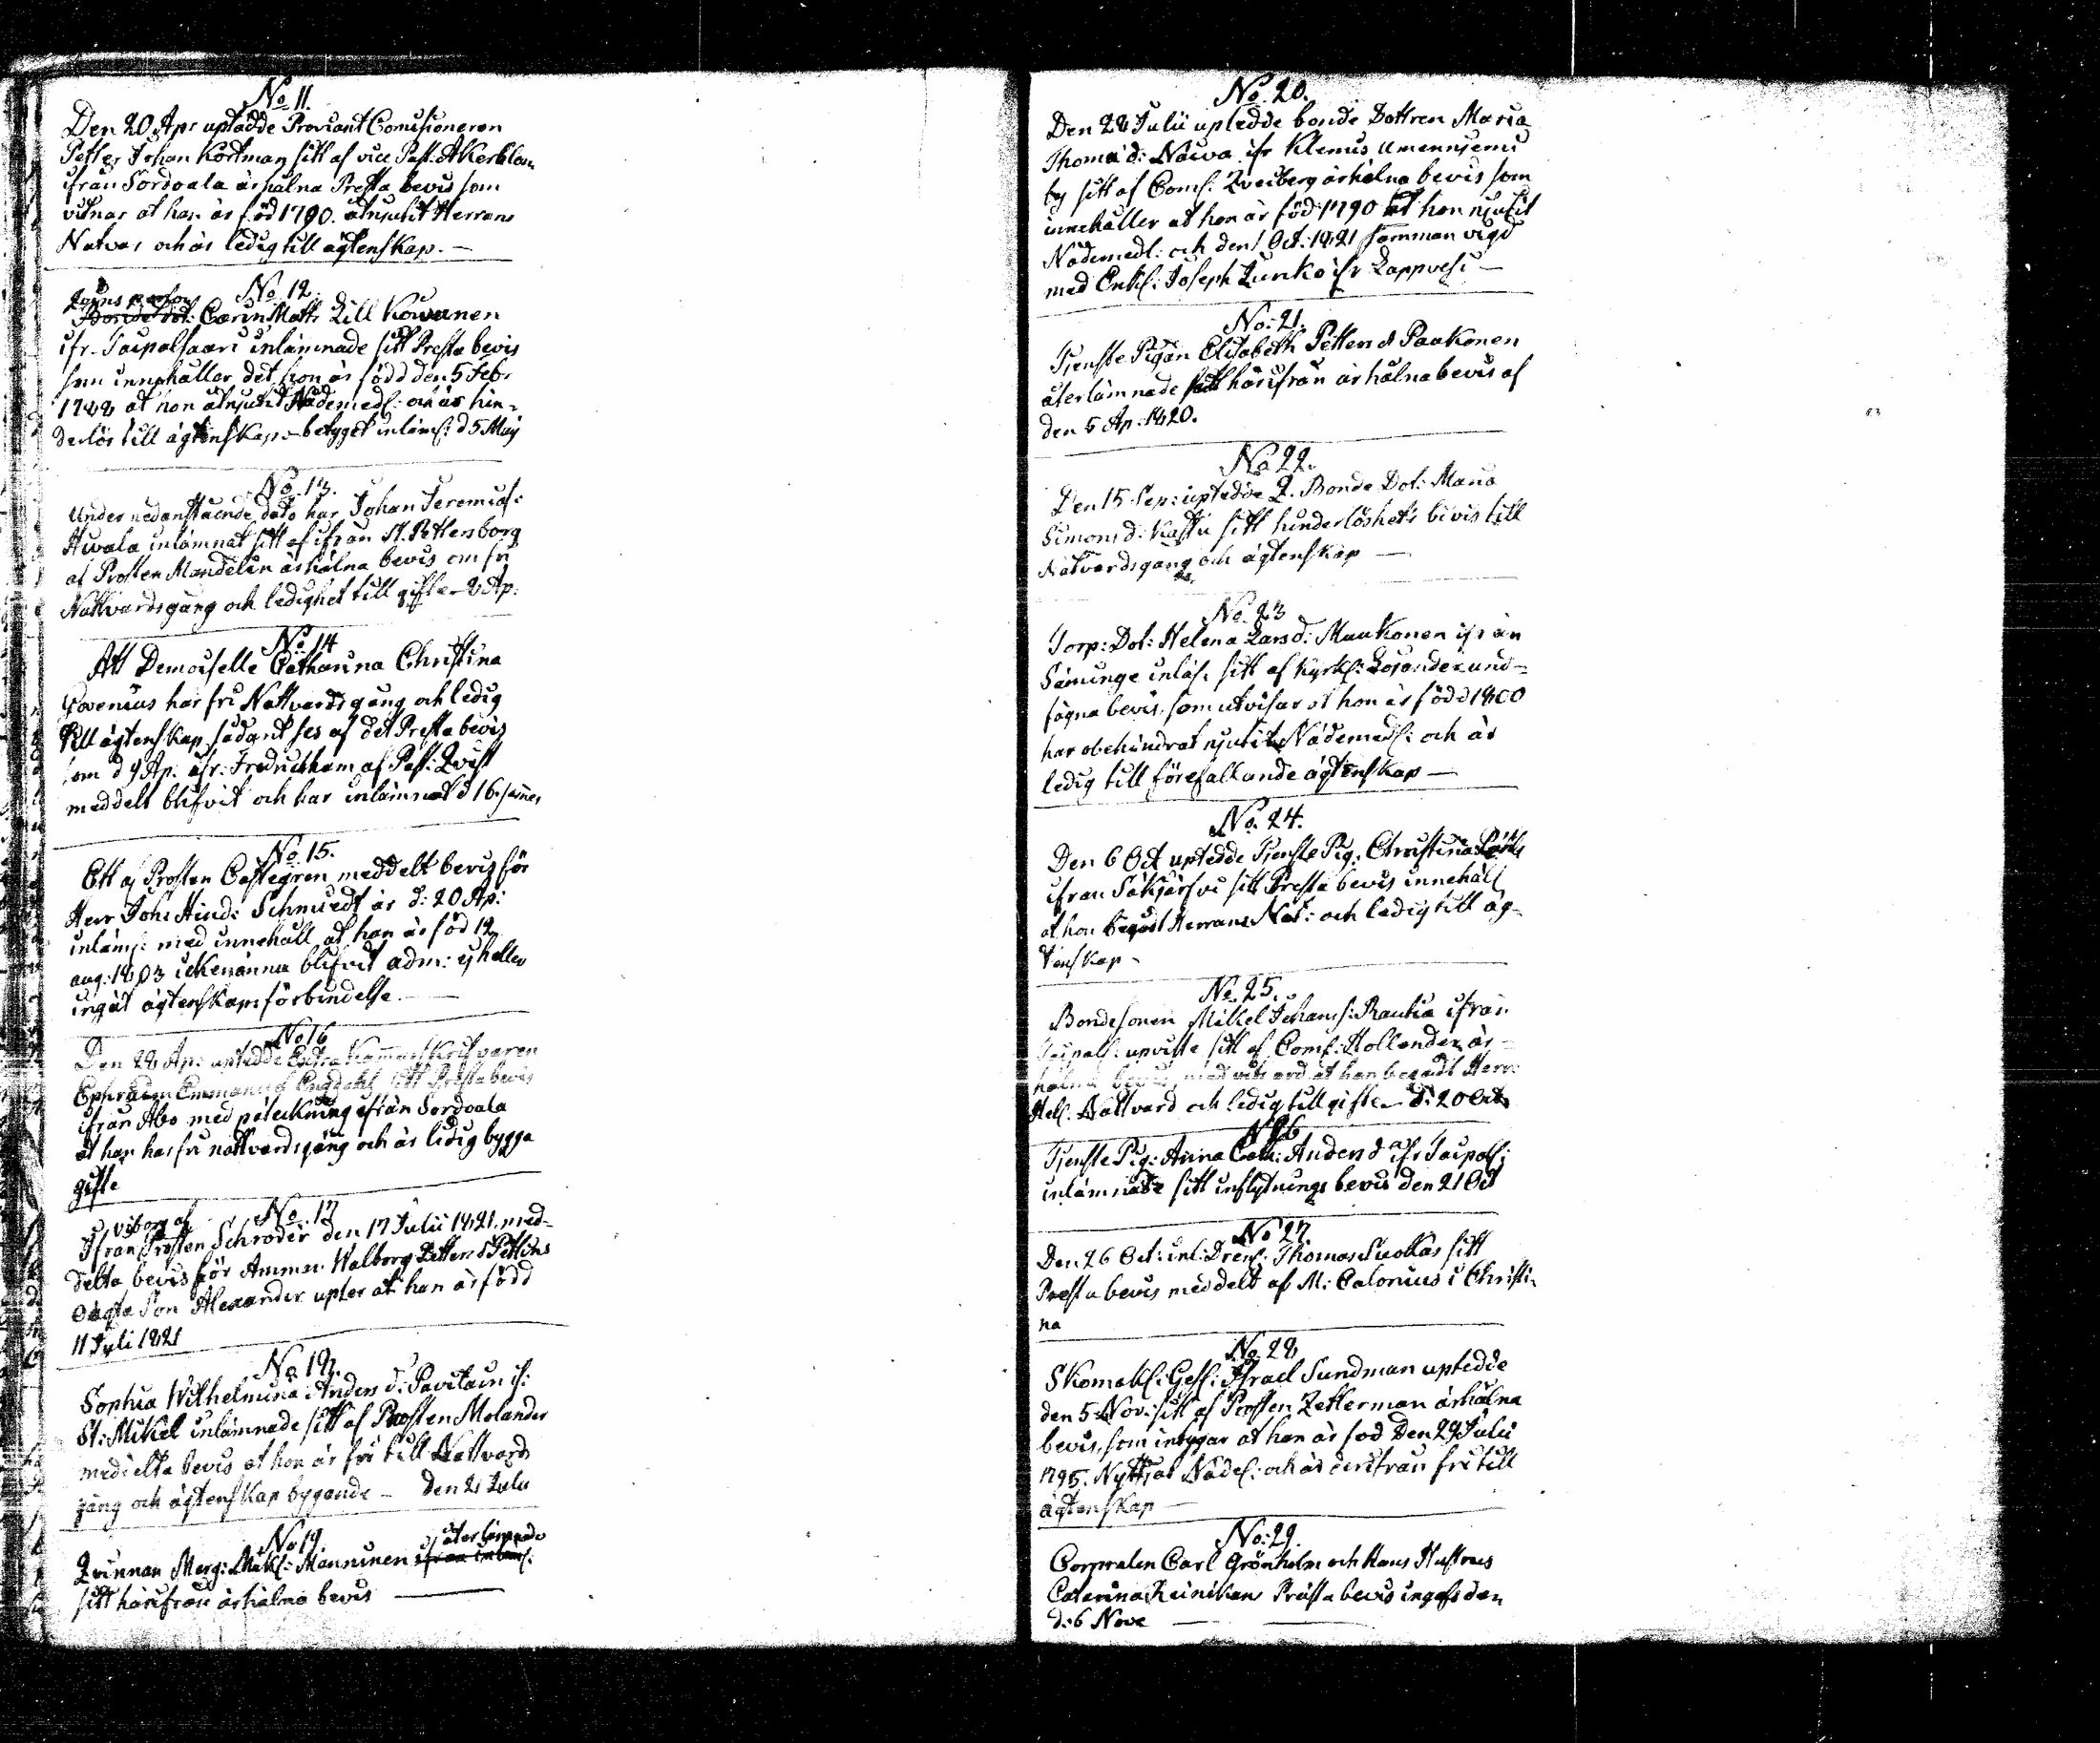 No 11.
Den 20 Apr uptedde Proviant Comisioneren
Petter Johan Kortman sitt af vice Past. Akerblom
ifrån Sordvala ärhålna Presta bevis som
vitnar at han är född 1790. åtnjutit Herrans
Natvar och är ledig till ägtenskap.—
No 12.
Qvins person
Bonde dot: Carin Matts Lill Kowanen
ifr. Taipalsaari inlämnade sitt Presta bevis
som innehåller det hon är född den 5 Febr
1788 at hon åtnjutit Nådemedl: och är hin-
derlös till ägtenskap.— betyget inläml: d 5 Maij
No. 13.
Under nedanstående dato har Johan Jeremias:
Hwala inlämnat sitt af ifrån St. Pettersborg
af Prosten Mandelin ärhålna bevis om fri
Nattvardsgång och ledighet till gifte 2 Ap:
No 14
Att Demoiselle Catharina Christina
Govenius har fri Nattvardsgång och ledig
till ägtenskap, sådant ses af det Presta bevis
som d 9 Ap. ifr: Fredrickham af Past: Qvist
meddelt blifvit och har inlämnat d 16 samma
No 15.
Ett af Prosten Castegren meddelt bevis för
Herr Joh: Hind: Schmiedt är d: 20 Ap:
inläml: med innehåll at han är född 12
aug: 1803 ickenännu blifvit adm: ej heller
ingåt ägtenskaps förbindelse.—
No 16
Den 28 Ap: uptedde Extra Kammarskrifvaren
Ephraim Emmanuel Engdahl sitt Presta bevis
ifrån Abo med påteckning ifrån Sordvala
at han har fri nattvardsgång och är ledig bygga
gifte
No 17
Viborg af
Ifran Prosten Schroder den 17 Julii 1821. med-
delta bevis för Amman Walborg Petters d Pettins
oägta Son Alexander upter at han är född
11 Juli 1821
No 18.
Sophia Wilhelmina Anders d: Pavilain if:
St: Mikel inlämnade sitt af Prosten Molander
meddelta bevis at hon är fri till Nattvards
gång och ägtenskap bygande — den 21 Julii
No 19.
Qvinnan Marg: Mikl: Manninen återlämnade
ifran inläml:
sitt härifrån ärhålna bevis —
No 20.
Den 28 Julii uptedde bonde Dottren Maria
Thoma d: Näwa ifr Klemis
by sitt af Coms: Zveiberg ärhålna bevis som
innehåller at hon är född 1790 at hon njutit
Nådemedl: och den 1 Oct: 1821 samman vigd
med Enkl: Joseph Junko ifr Lappvesi —
No: 21.
Tjenste Pigan Elisabeth Petters d Paakonen
återlämnade sitt härifrån ärhålna bevis af
den 5 Ap. 1820.
No 22.
Den 15 Sep: uptedde Q. Bonde Dot: Maria
Simons d: Kastu sitt hinderlöshets bevis till
Natvardsgang och ägtenskap —
No. 23
Torp: Dot: Helena Lars d: Maukonen ifrån
Säminge inläs: sitt af Kyrkl: Lojander und-
fägna bevis, som utvisar at hon är född 1800
har obehindrat njutit Nådemedl: och är
ledig till förefallande ägtenskap —
No. 24.
Den 6 Oct uptedde Tjenste Pig: Christina
ifran Säkjärfvi sitt Presta bevis innehåll
at hon begådt Herrans Nat: och ledig till äg-
tenskap -
No. 25.
Bondesonen Mikel Johans: Rautia ifrån
Taipals: upviste sitt af Coms: Hollender är-
hålna bevis, med vitsord at han begådt Herr:
Hel: Nattvard och ledig till gifte — d: 20 Oct:
No 26
Tjenste Pig: Anna Cath: Anders d ifr Taipals:
inlämnade sitt inflytnings bevis den 21 Oct
No 27.
Den 26 Oct: inl: Dreng. Thomas Suokas sitt
Presta bevis meddelt af M: Calonius i Christi-
na
No. 28
Skomak: Ges: Israel Sundman uptedde
den 5 Nov: sitt af Prosten Zetterman ärhålna
bevis, som intygar at han är född Den 29 Julii
1795. Nyttjat Nådel: och är derifrån fri till
ägtenskap —
No: 29.
Corpralen Carl Grönholm och Hans Hustrus
Catarina Reinikans Prästa bevis ingafs den
d: 6 Nove —